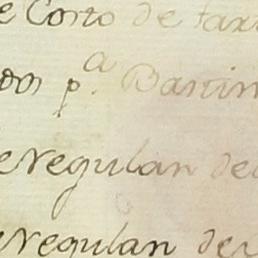 e Costo de tax
dos p.ª Bastim
e regulan de
e regulan de